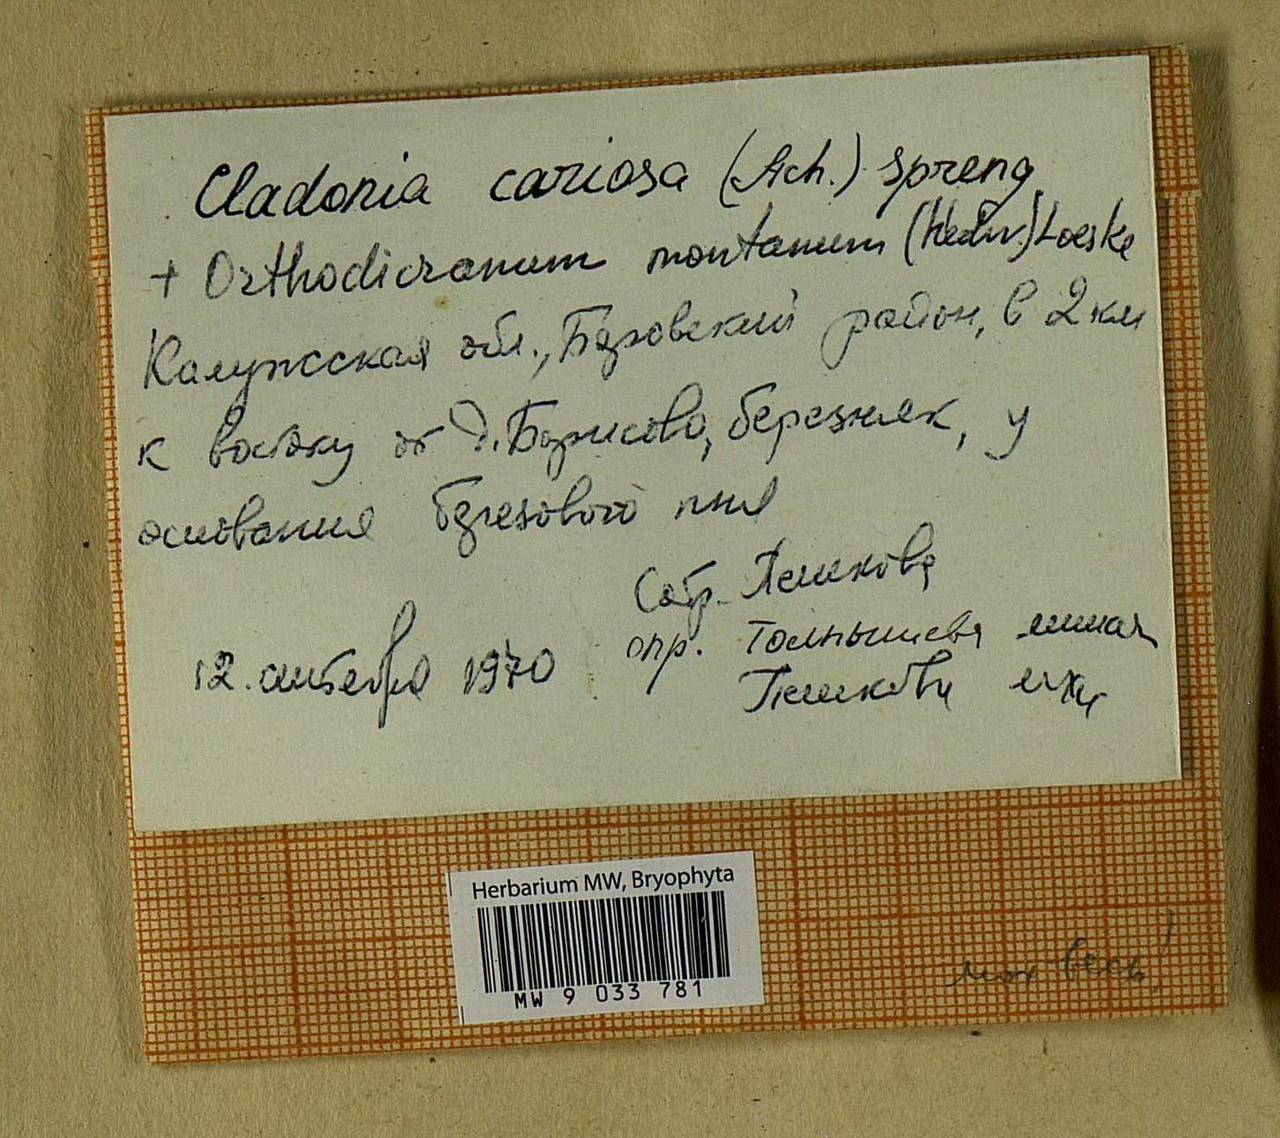 Cladonia cariosa (Ach.) Spreng.
+ Orthodicranum montanum (Hedw.) Loeske
Калужская обл., Боровский район, в 2 км
к востоку от д. Борисово, березняк, у
основания березового пня
Собр. Пешкова
опр. Толпышева лишай
Пешкова мхи
12. октября 1970
Herbarium MW, Bryophyta
MW 9 033 781
мох весь!